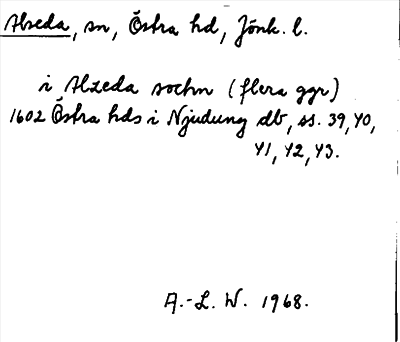 Alseda, sn, Östra hd, Jönk. l.
i Alzeda sochn (flera ggr)
1602 Östra hds i Njudung db, ss. 39, 40,
41, 42, 43.
A.-L. W. 1968.